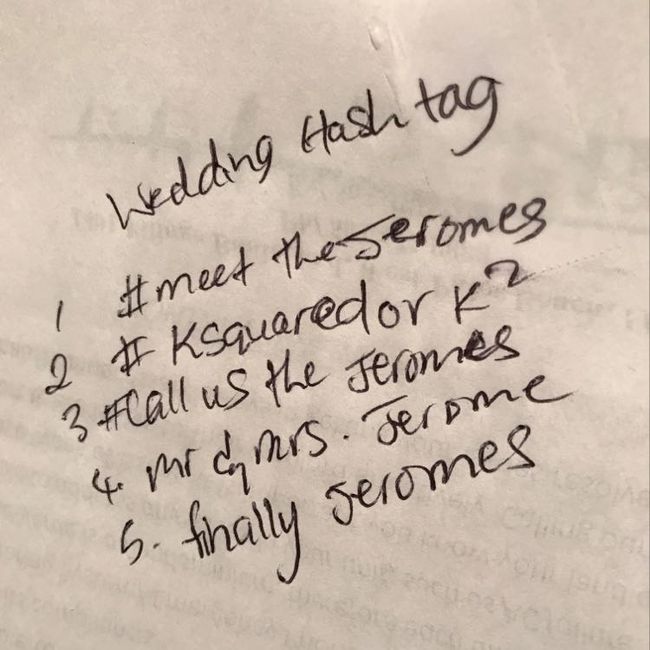 Wedding Hashtag
1 #meet the Jeromes
2 # Ksquared or K²
3 #Call us the Jeromes
4. mr & mrs. Jerome
5. finally Jeromes